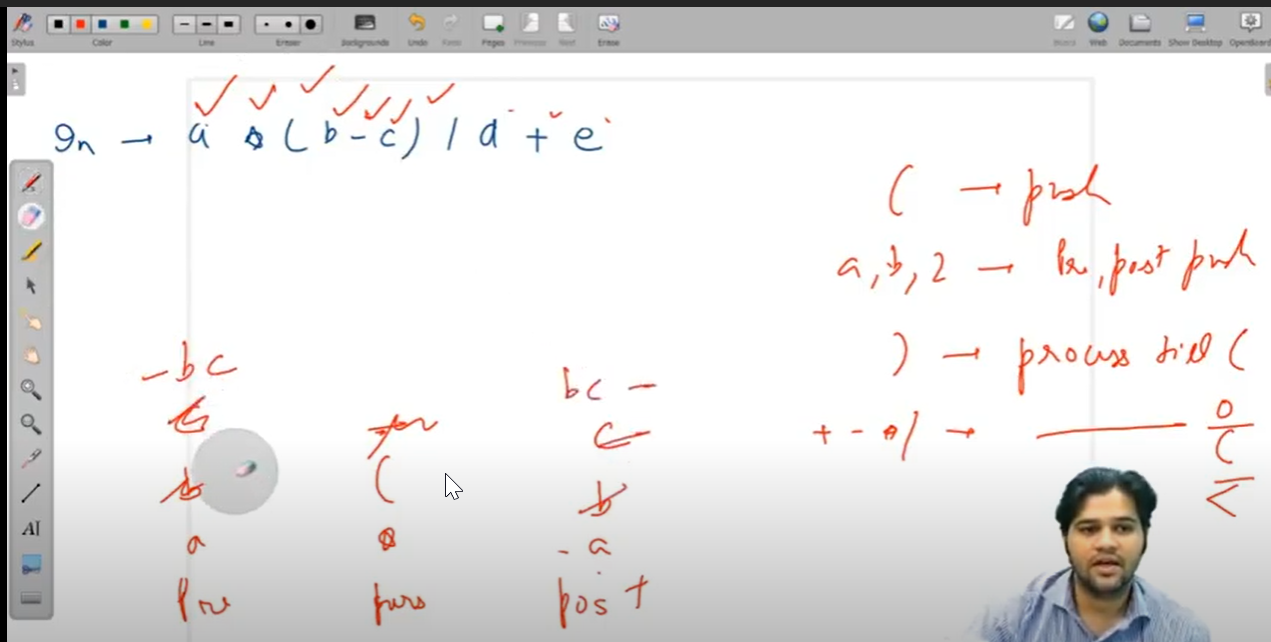 Stylus Color Line Eraser Backgrounds Undo Redo Pages Previous Next Erase Board Web Documents Show Desktop OpenBoard
In → a * ( b - c ) / d + e
( → push
a, b, 2 → Pre, post push
) → process till (
+ - * / →
0
(
<
- b c
c
b
a
Pre
(
*
bc -
c
b
- a
post
AI